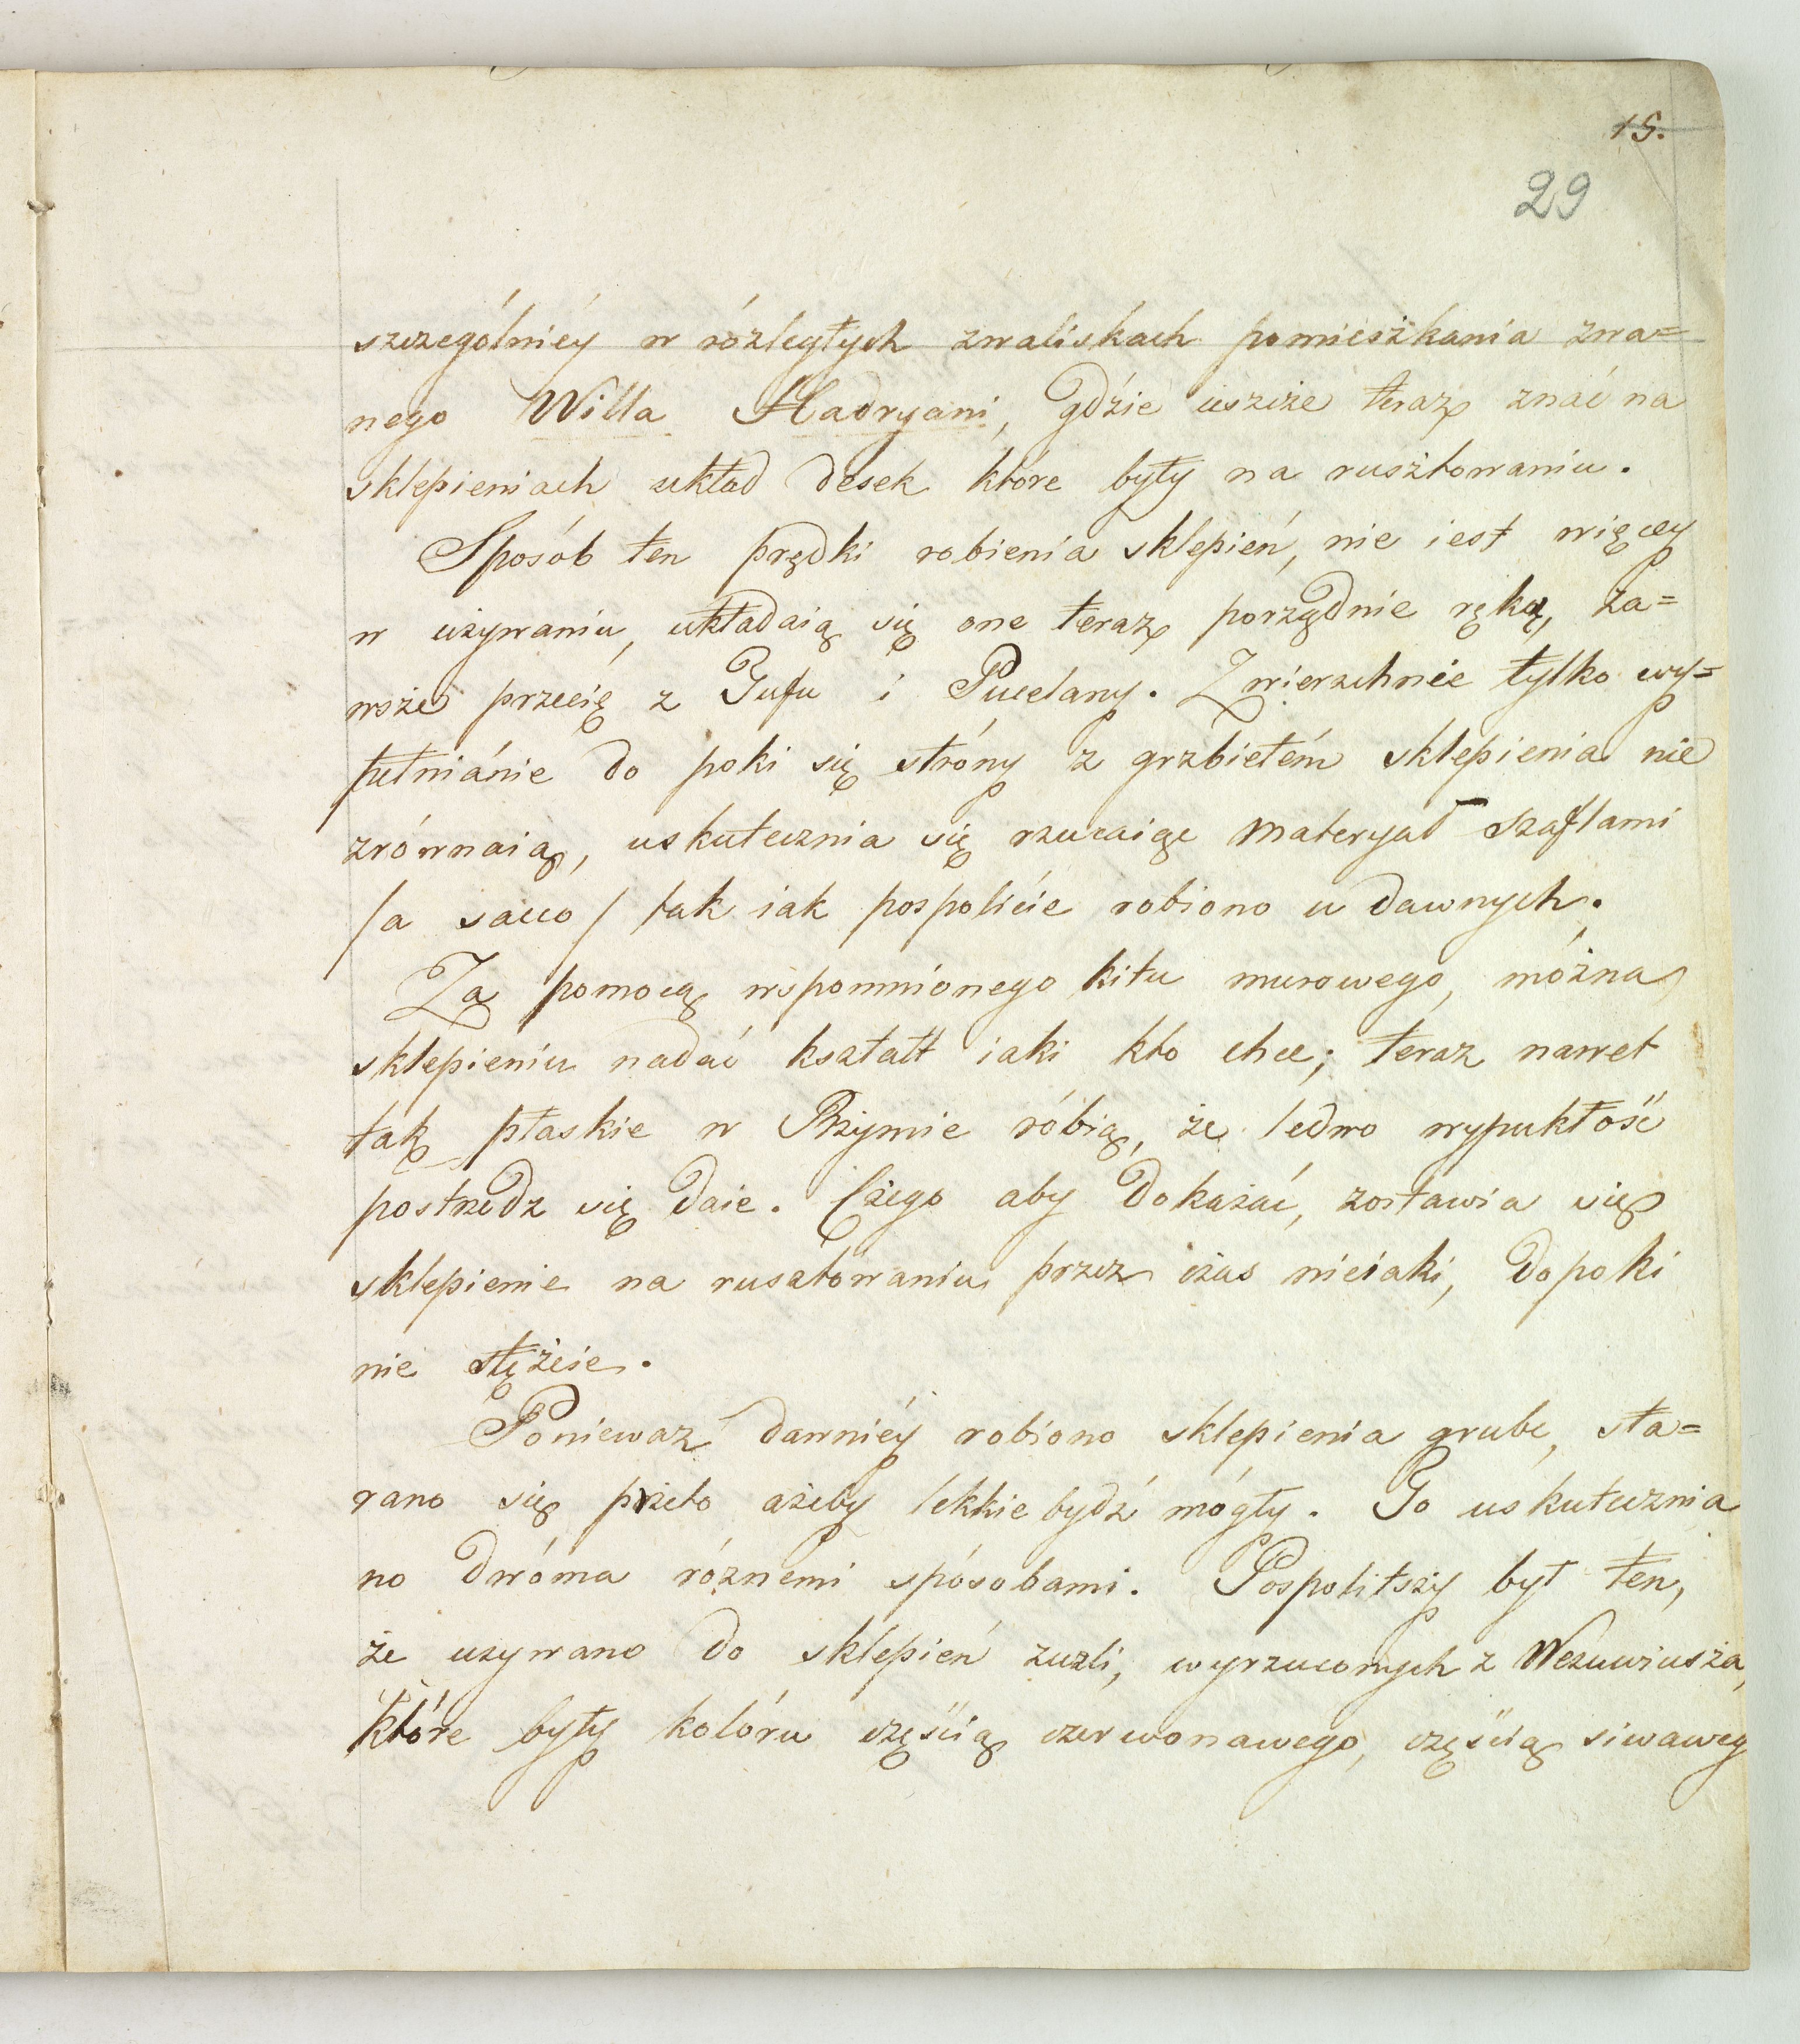 15.
29
szczególniéy w rózległych zwaliskach pomieszkania zwa=
nego Willa Hadryani, gdźie ieszcze teraz znać na
sklepieniach układ desek które były na rusztowaniu.
Sposób ten prędki robienia sklepień, nie iest więcey
w uzywaniu, układaią się one teraz porządnie ręką, za=
wsze przecię z Tufu i Pucelany. Zwierzchnie tylko wy=
pełniánie do poki się stróny z grzbietém sklepienia nie
zrównaią, uskutecznia się rzucaiąc materyał szaflami
/a sacco/ tak iak pospolićie robiono u dawnych.
Za pomocą wspomnionego kitu murowego, mózna
sklepieniu nadać kształt iaki kto chce; teraz nawet
tak płaskie w Rzymie róbią, że ledwo wypukłość
postrzedz się daie. Czego aby dokazać, zostawia się
sklepienie na rusztowaniu przez czas nieiaki, dopoki
nie stężeie.
Poniewaz dawniéy robiono sklepienia grube, sta=
rano się przeto ażeby lekkie bydź mógły. To uskutecznia
no dwóma róznemi spósobami. Pospolitszy był ten,
że uzywano do sklepień zuzli, wyrzuconych z Wezuwiusza,
które były kolóru częścią czerwonawego, częścią siwaweg